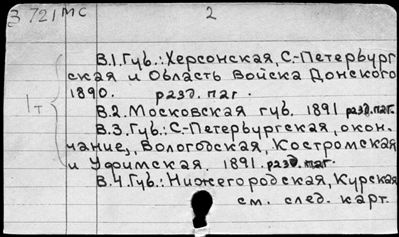 З 721 МС 2
В.1. Губ.: Херсонская, С.-Петербург
ская и Область Войска Донского
1890. разд. паг.
1т
В.2. Московская губ. 1891 разд. паг.
В.3. Губ.: С.-Петербургская, окон-
чание, Вологодская, Костромская
и Уфимская. 1891. разд. паг.
В.4. Губ.: Нижегородская, Курская
см. след. карт.